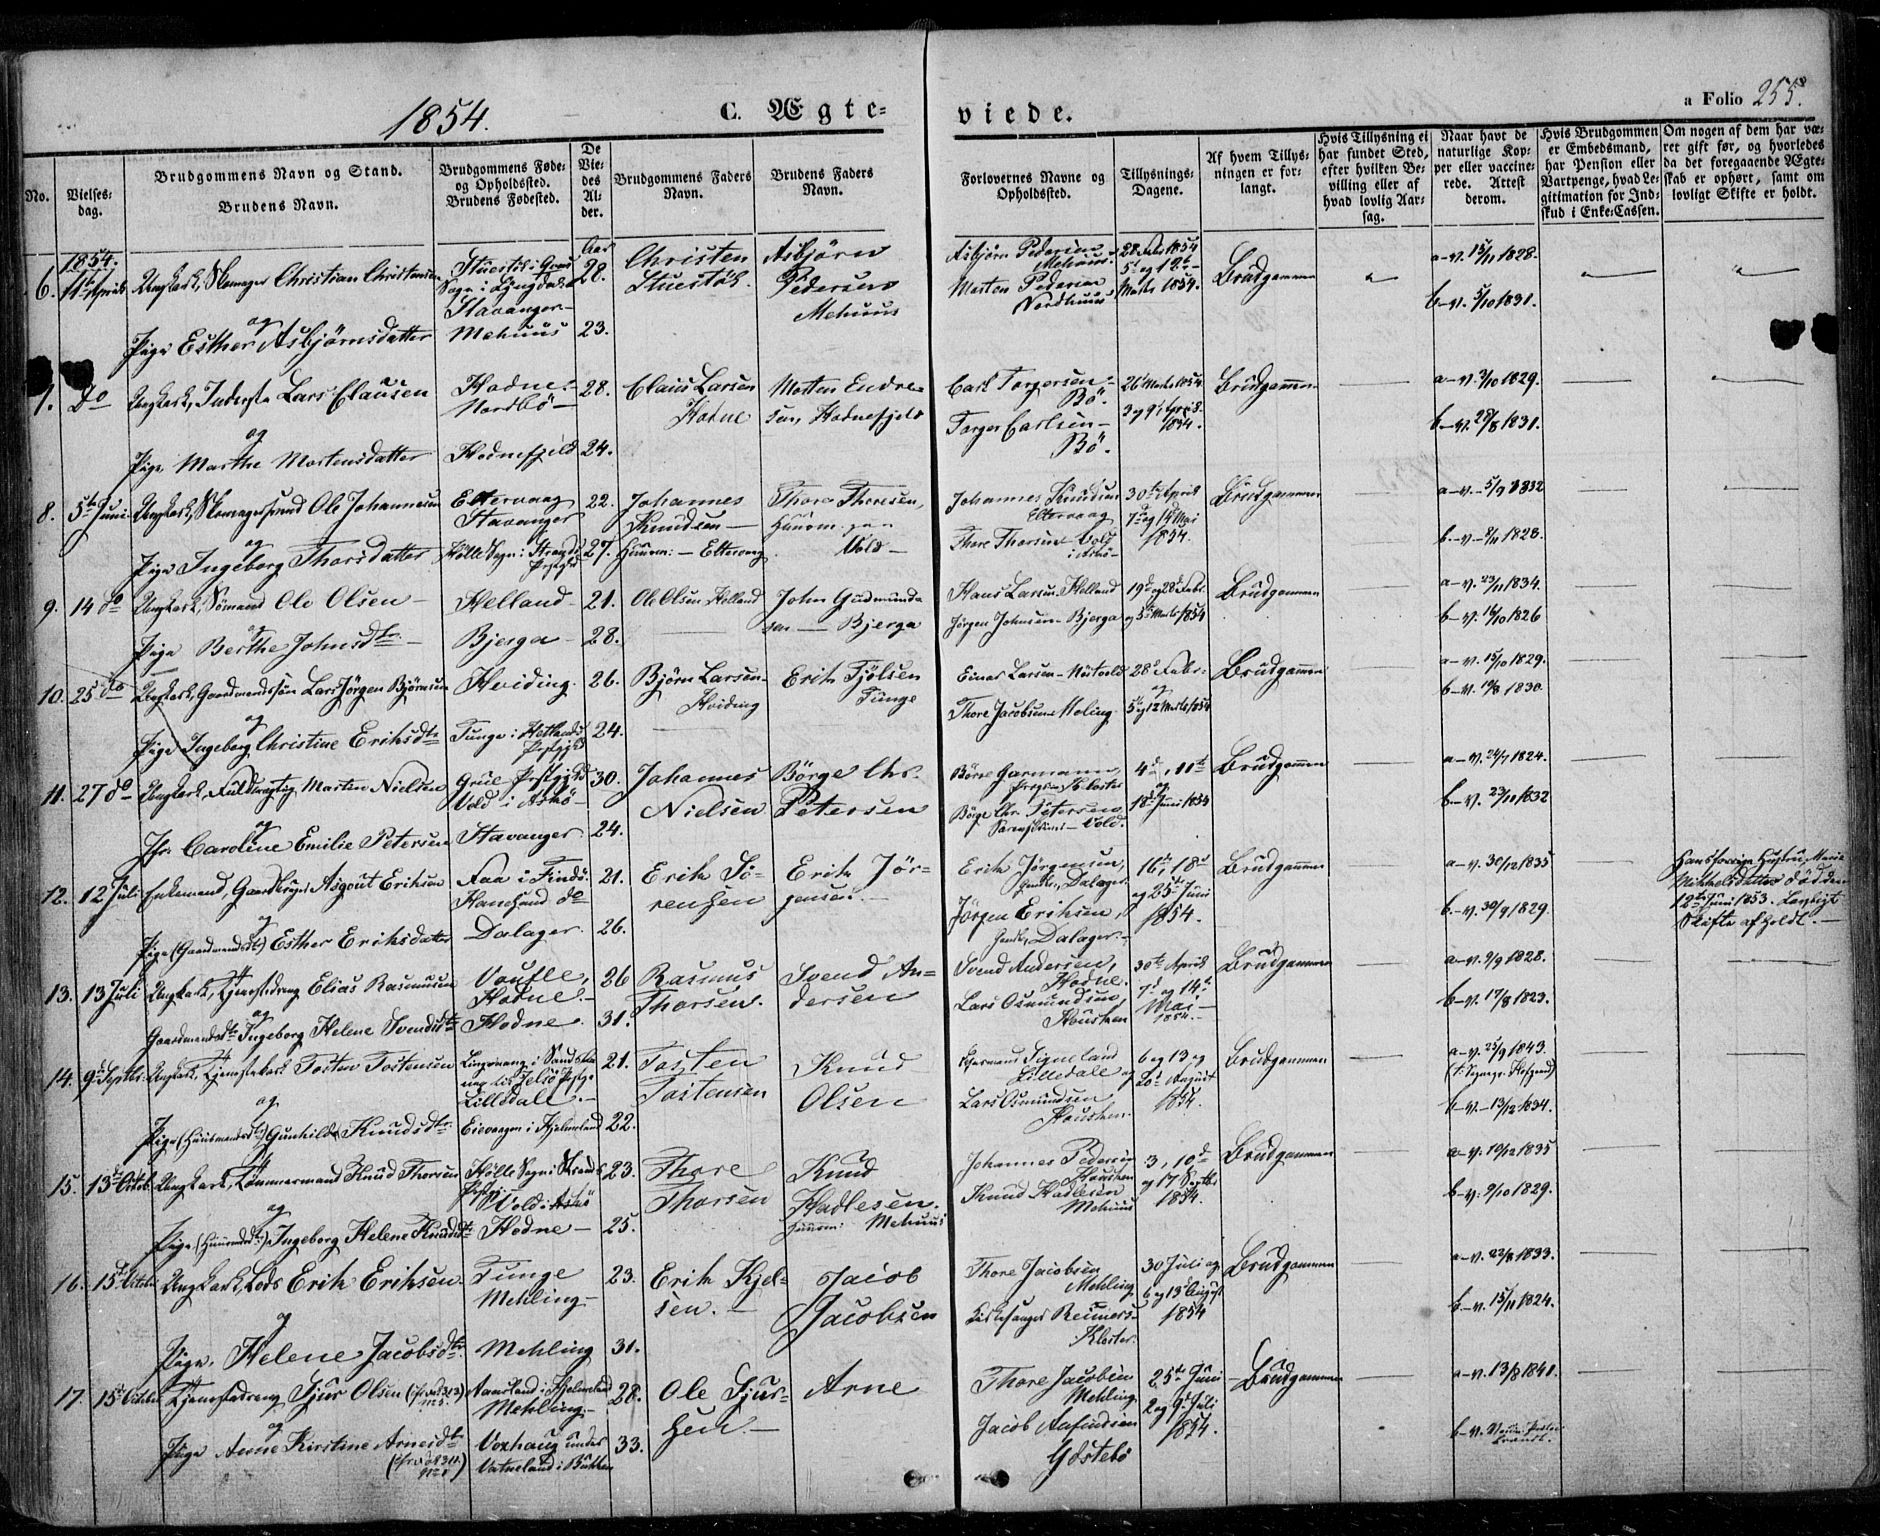 1854.
C. Ægte-
viede.
a Folio 255.
No.
Vielses-
dag.
Brudgommens Navn og Stand.
Brudens Navn.
Brudgommens Føde-
og Opholdssted.
Brudens Fødested.
De
Vie-
des
Al-
der.
Brudgommens Faders
Navn.
Brudens Faders
Navn.
Forlovernes Navne og
Opholdssted.
Tillysnings-
Dagene.
Af hvem Tillys-
ningen er for-
langt.
Hvis Tillysning ei
har fundet Sted,
efter hvilken Be-
villing eller af
hvad lovlig Aar-
sag.
Naar havt de
naturlige Kop-
per eller vaccine-
rede. Attest
derom.
Hvis Brudgommen
er Embedsmand,
har Pension eller
Vartpenge, hvad Le-
gitimation for Ind-
skud i Enke-Cassen.
Om nogen af dem har væ-
ret gift før, og hvorledes
da det foregaaende Ægte-
skab er ophørt, samt om
lovligt Skifte er holdt.
1854.
6. April
Ungkarl, Skomager Christian Christensen
og
Pige Esther Asbjørnsdatter
Stavanger
Mehuus
Aar
28.
23.
Christen
Stuestøl.
Asbjørn
Pedersen
Mehuus
Asbjørn Pedersen
Mehuus.
Morten Pedersen
Nordhuus
28 Febr 1854
5 og 12
Marts 1854.
Brudgommen
a-v. 15/11 1828.
b-v. 5/10 1831.
7. Do
Ungkarl, Inderste Lars Clausen
og
Pige Marthe Mortensdatter
Hodne-
Nordbö-
Hodnefjeld
28.
24.
Claus Larsen
Hodne
Morten Endre-
sen, Hodnefjeld
Carl Torgersen-
Bö.
Torger Carlsen-
Bö.
26 Marts 1854
3 og 9 April
1854.
Brudgommen
a-v. 3/10 1829.
b-v. 28/8 1831.
8. 5te Juni
Ungkarl, Ole Johannesen
og
Pige Ingeborg Thorsdatter
Eltervaag
Stavanger
Hölle Sogn i Strands
Prstgjld
22.
27.
Johannes
Knudsen-
Huusm:- Eltervaag
Thore Thoresen,
Huusm.
Vold-
Johannes Knudsen
Eltervaag
Thore Thorsen Vold
i Askö
30te April
7de og 14de Mai
1854.
Brudgommen
a-v.- 5/9 1832
b.-v.- 8/11 1828.
9. 14 do
Ungkarl, Sömand Ole Olsen-
og
Pige Berthe Johnsdtr-
Helland-
Bjerga-
21.
28.
Ole Olsen Helland
John Gudmund-
sen - Bjerga
Hans Larsen-Helland
Jørgen Johnsen-Bjerga
19de og 28de Febr.
og 5te Marts 1854
Brudgommen
a-v. 23/11 1834.
b-v. 16/10 1826
10. 25 do
Ungkarl, Gaardmandssön Lars Jørgen Bjørnsen
og
Pige Ingeborg Christine Eriksdtr
Hviding-
Tunge i Hetlands
Prstgjld
26.
24.
Bjørn Larsen-
Hviding
Erik Tjölsen
Tunge
Einar Larsen-
Thore Jacobsen-Meling.
28de Febr:
og
5te og 12 Marts 1854
Brudgommen
a-v. 15/10 1829.
b-v. 19/8 1830.
11. 27 do
Ungkarl, Fuldmægtig Morten Nielsen
og
Jfr: Caroline Emilie Petersen
Grue Prstgjld
Vold i Askö-
Stavanger
30.
24.
Johannes
Nielsen
Børge Chr.
Petersen
Børre Garmann,
Kloster
Börge Chr. Petersen
Vold.
4de, 11te
og
18de Juni 1854
Brudgommen
a-v. 24/7 1824.
b-v. 23/11 1832
12. 12 Juli
Enkemand, Gaardbruger Asgout Eriksen
og
Pige (Gaardmandsdtr) Esther Eriksdatter
Faa i Findö
Hanesund do
Dalager.
21.
26.
Erik Sö-
rensen
Erik Jör-
gensen.-
Erik Jørgensen,
Gmdbr, Dalager.
Jørgen Eriksen,
Gmdbr, Dalager.-
11te, 18de
og 25de Juni
1854.
Brudgommen
a-v. 30/12 1835
b-v. 30/9 1829.
Hans forrige Hustru Marie
Mikkelsdatter död den
12te Juni 1853. Lovligt
Skifte afholdt.-
13. 13 Juli
Ungkarl, Tjenestedreng Elias Rasmussen
og
Gaardmandsdtr Ingeborg Helene Svendsdtr
Voufle,
Hodne.-
Hodne.
26
31.
Rasmus
Thorsen.
Svend An-
dersen
Svend Andersen,
Hodne.
Lars Osmundsen
Housken
30te April
7de og 14de
Mai-
1854.-
Brudgommen
a-v. 9/9 1828.
b-v. 17/8 1823.
14. 9de Septbr.
Ungkarl, Tjenestekarl Tosten Tostensen
og
Pige (Huusmandsdtr) Gunhilde Knudsdtr
Jelsö Prstgj
Lilledale.-
Eievaagen i Hjelmeland
21.
22.
Tosten
Tostensen
Knud
Olsen
Signeland
Lilledale og
Lars Osmundsen
Housken.
6 og 13 og
20de August
1854.
Brudgommen
a-v. 25/9 1843.
b-v.- 13/12 1834.
15. 13de Octob.
Ungkarl, Tömmermand Knud Thorsen
og
Pige (Huusmdsdtr.) Ingeborg Helene Knudsdtr
Hölle Sogn i Strands
Prstgj:
Vold i Askö
Hodne-
23.
25.
Thore
Thorsen
Knud
Hadlesen.
Huusm: Mehuus
Johannes Pedersen
Housken
Knud Hadlesen
Mehuus
3, 10de
og 17 Septbr
1854.
Brudgommen
a-v. 19/12 1835
b-v: 9/10 1829.
16. 15de Octobr
Ungkarl, Lods Erik Eriksen
og
Pige. Helene Jacobsdtr.
Tunge
Mehling-
Mehling
23.
31.
Erik Kjel-
sen.-
Jacob
Jacobsen
Thore Jacobsen
Mehling
Kirkesanger Reimers-
Kloster.
30 Juli og
6 og 13de August
1854
Brudgommen
a-v. 22/8 1833.
b-v. 15/11 1824.
17. 15de Octobr
Tjenestedreng Sjur Olsen
og
Pige Anne Kirstine Arnesdtr
Aarsland i Hjelmeland
Mehling-
Voxhaug under
Vatneland i Bukken
28.
33.
Ole Sjur-
sen.-
Arne
Thore Jacobsen
Mehling
Jacob Aafindsen
Göstebö
25de Juni
2 og 9de Juli
1854.
Brudgommen
a-v. 13/8 1841.